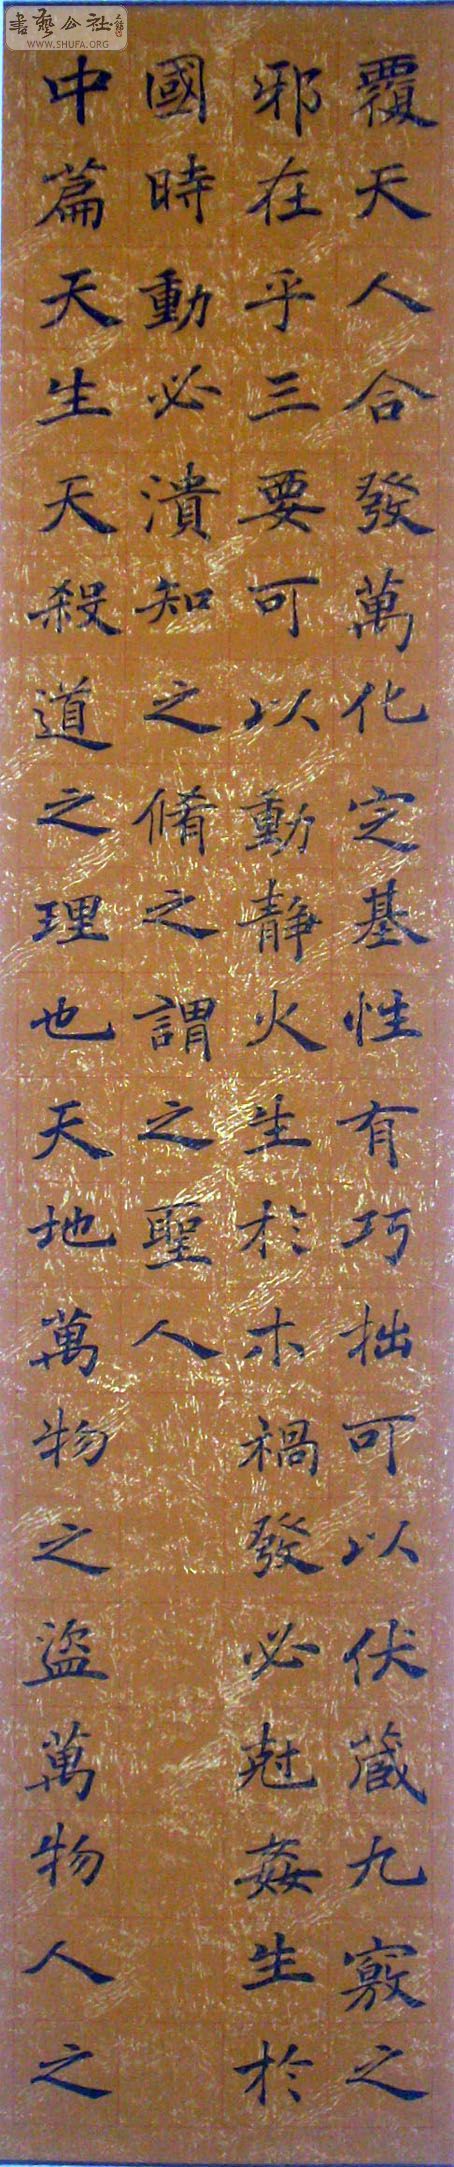 覆天人合發萬化定基性有巧拙可以伏藏九竅之
邪在乎三要可以動靜火生於木禍發必尅姦生於
國時動必潰知之脩之謂之聖人
中篇天生天殺道之理也天地萬物之盜萬物人之
書藝公社
WWW.SHUFA.ORG